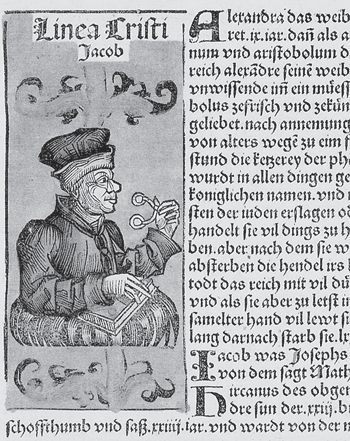 Linea Cristi
Jacob
Alexandra das weib
ret.ix.iar.dañ als a
num vnd aristobolum d
reich alexādre seinē weib
vnwissende iñ ein müess
bolus zefrisch vnd zekün
geliebet. nach annemung
von alters wegē zu eim f
stund die ketzerey der ph
wurdt in allen dingen ge
königlichen namen. vnd i
sten der iuden erslagen od
handelt sie vil dings zu h
ben. aber nach dem sie w
absterben die hendel irs l
todt das reich mit vil dü
vnd als sie aber zu letst in
samelter hand vil lewt si
lang darnach starb sie.lx
Jacob was Josephs
von dem sagt Math
Hircanus des obgen
dre sun der.xxiij.bi
schoffthumb vnd saß.xxiiij.iar. vnd wardt von der m